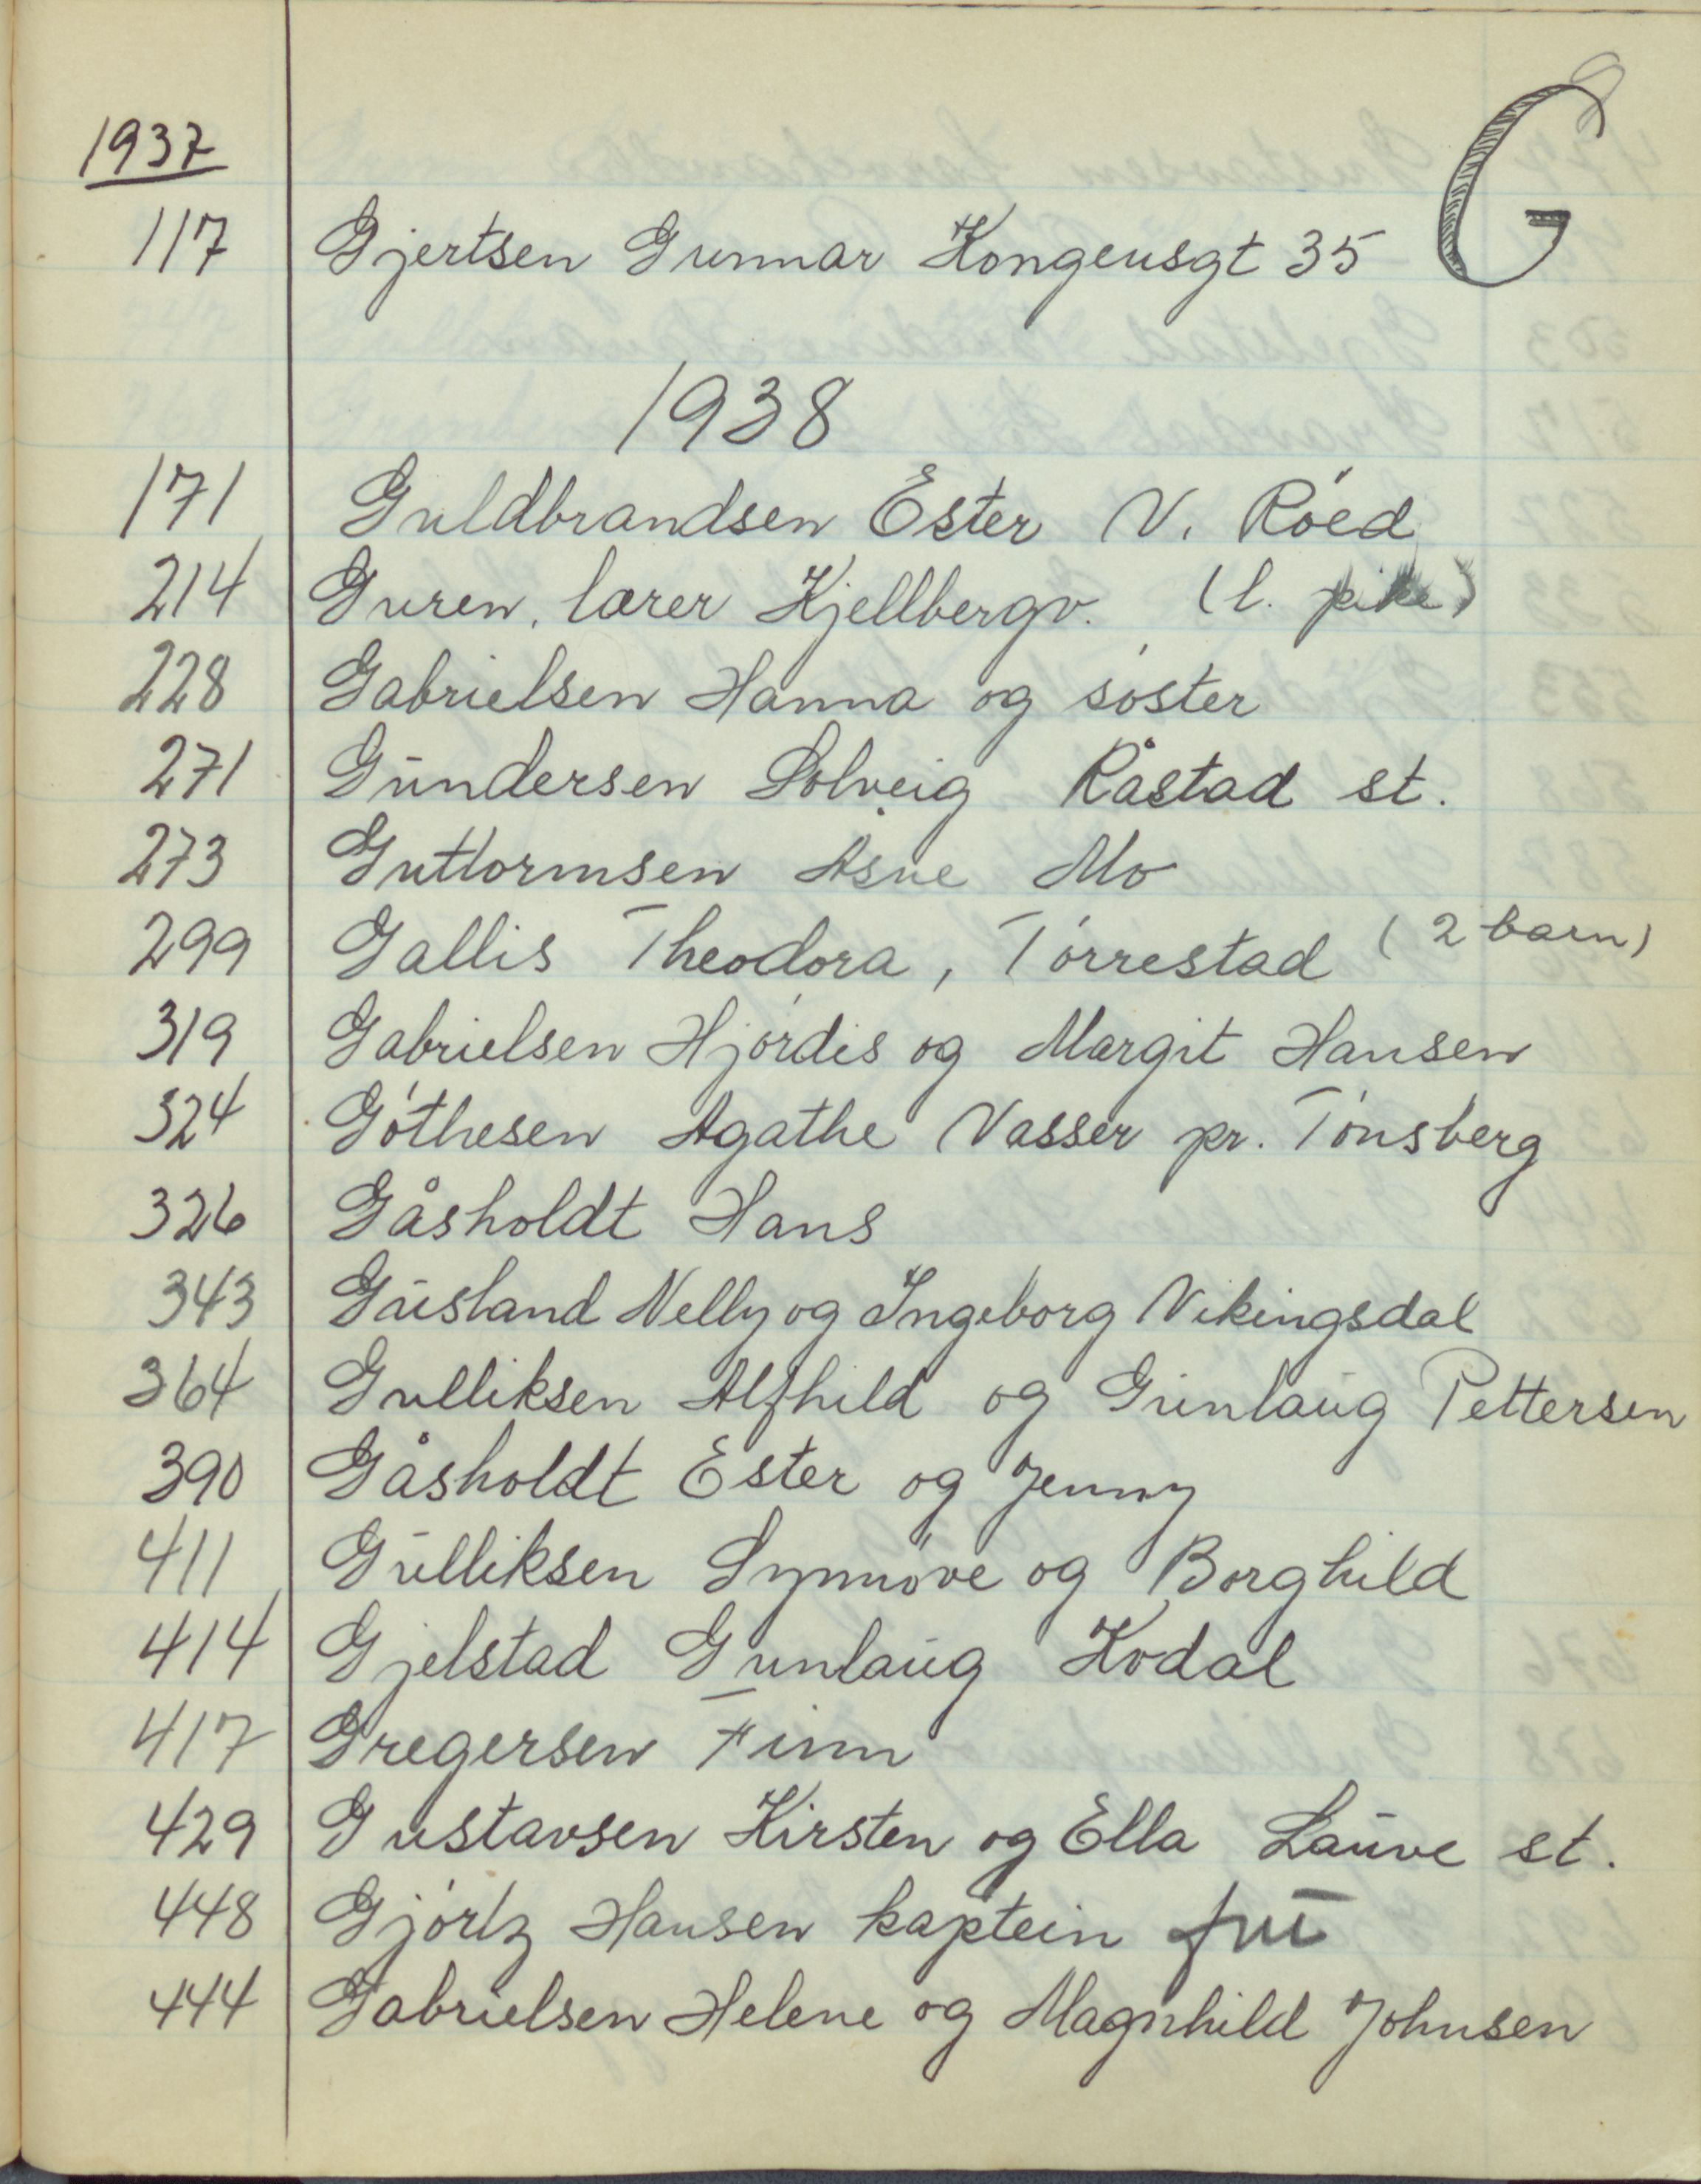 G
1937
117 Gjertsen Gunnar Kongensgt 35
1938
171 Guldbrandsen Ester N. Røed
214 Guren, lærer Kjellbergv. (l. pike)
228 Gabrielsen Hanna og søster
271 Gundersen Solveig Råstad st.
273 Guttormsen Asne Mo
299 Gallis Theodora, Tørrestad (2 barn)
319 Gabrielsen Hjørdis og Margit Hansen
324 Gøthesen Agathe Vasser pr. Tønsberg
326 Gåsholdt Hans
343 Gausland Nelly og Ingeborg Vikingsdal
364 Gulliksen Alfhild og Gunlaug Pettersen
390 Gåsholdt Ester og Jenny
411 Gulliksen Synnøve og Borghild
414 Gjelstad Gunlaug Kodal
417 Gregersen Finn
429 Gustavsen Kirsten og Ella Lauve st.
448 Gjørtz Hansen kaptein fru
444 Gabrielsen Helene og Magnhild Johnsen